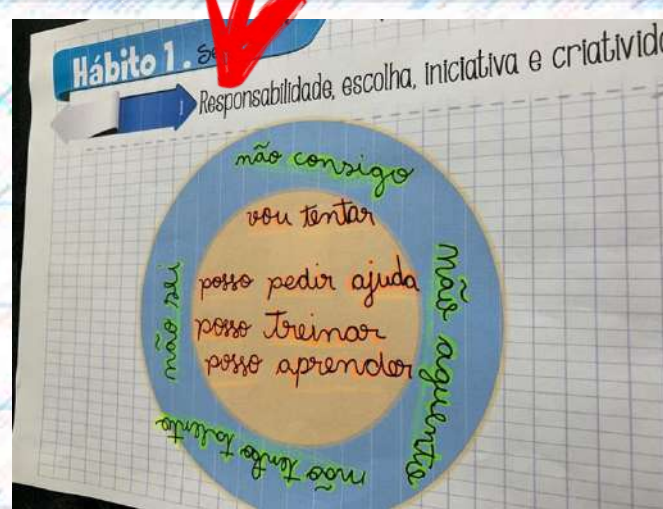 Hábito 1. Se
Responsabilidade, escolha, iniciativa e criativid
não consigo
vou tentar
posso pedir ajuda
posso treinar
posso aprender
não aguento
não tenho talento
não sei